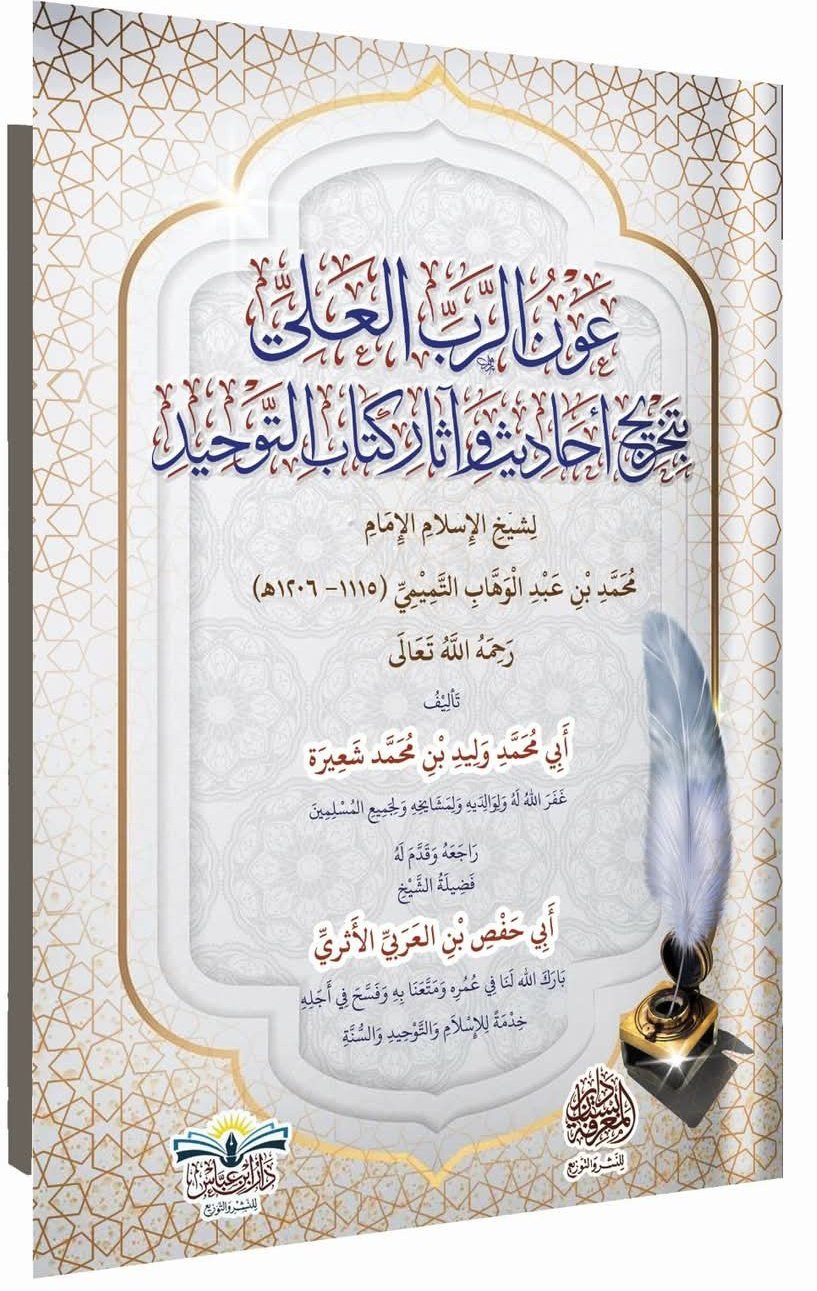 عَوْنُ الرَّبِّ العَلِيِّ
بِتَخْرِيجِ أَحَادِيثِ وَآثَارِ كِتَابِ التَّوْحِيدِ
لِشَيْخِ الإِسْلَامِ الإِمَامِ
مُحَمَّدِ بْنِ عَبْدِ الْوَهَّابِ التَّمِيْمِيِّ (١١١٥- ١٢٠٦هـ)
رَحِمَهُ اللَّهُ تَعَالَى
تَأْلِيْفُ
أَبِي مُحَمَّدِ وَلِيدِ بْنِ مُحَمَّد شَعِيرَة
غَفَرَ اللهُ لَهُ وَلِوَالِدَيهِ وَلِمَشَايِخِهِ وَلِجَمِيعِ المُسْلِمِينَ
رَاجَعَهُ وَقَدَّمَ لَهُ
فَضِيلَةُ الشَّيْخِ
أَبِي حَفْصٍ بْنِ العَرَبِيِّ الأَثَرِيِّ
بَارَكَ الله لَنَا فِي عُمُرِهِ وَمَتَّعَنَا بِهِ وَفَسَّحَ فِي أَجَلِهِ
خِدْمَةً لِلإِسْلَامِ وَالتَّوْحِيدِ وَالسُّنَّةِ
دار بستان المعرفة
للنشر والتوزيع
دَارُ ابْنِ عَبَّاسٍ
للنشر والتوزيع